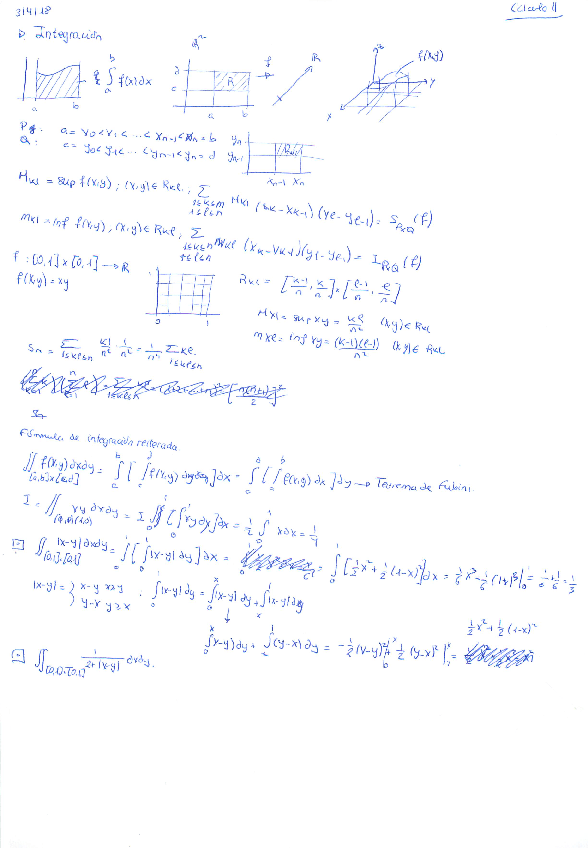 3/4/18 Cálculo II
D. Integración
∫_a^b f(x)dx R² f R f(x,y)
a b d c R a b x y z
P: a = x₀ < x₁ < … < xₙ₋₁ < xₙ = b
Q: c = y₀ < y₁ < … < yₙ₋₁ < yₙ = d
yₙ yₙ₋₁ xₙ₋₁ xₙ
M_kl = sup f(x,y) ; (x,y) ∈ R_kl , Σ_{1≤k≤n, 1≤l≤n} M_kl (x_k - x_{k-1}) (y_l - y_{l-1}) = S_{PxQ}(f)
m_kl = inf f(x,y) , (x,y) ∈ R_kl , Σ_{1≤k≤n, 1≤l≤n} m_kl (x_k - x_{k-1}) (y_l - y_{l-1}) = I_{PxQ}(f)
f : [0,1] x [0,1] → R
f(x,y) = xy
0 1
R_kl = [(k-1)/n, k/n] x [(l-1)/n, l/n]
M_kl = sup xy = kl/n² (x,y) ∈ R_kl
m_kl = inf xy = (k-1)(l-1)/n² (x,y) ∈ R_kl
Sₙ = Σ_{1≤k,l≤n} kl/n² · 1/n² = 1/n⁴ Σ_{1≤k,l≤n} kl
Fórmula de integración reiterada
∬_{[a,b]x[c,d]} f(x,y) dxdy = ∫_a^b [∫_c^d f(x,y) dy] dx = ∫_c^d [∫_a^b f(x,y) dx] dy → Teorema de Fubini
I = ∬ xy dxdy = ∫ [∫ xy dx] dx = 1/2 ∫_0^1 x dx = 1/4
∬_{[0,1]x[0,1]} |x-y| dxdy = ∫_0^1 [∫_0^1 |x-y| dy] dx = ∫_0^1 [1/2 x² + 1/2 (1-x)²] dx = 1/6 x³ - 1/6 (1-x)³ |_0^1 = 1/6 + 1/6 = 1/3
|x-y| = { x-y x≥y , y-x y≥x . ∫_0^1 |x-y| dy = ∫_0^x |x-y| dy + ∫_x^1 |x-y| dy
∫_0^x (x-y) dy + ∫_x^1 (y-x) dy = -1/2 (x-y)² |_0^x + 1/2 (y-x)² |_x^1 = 1/2 x² + 1/2 (1-x)²
∬_{[0,1]x[0,1]} 1/(2+|x-y|) dxdy.